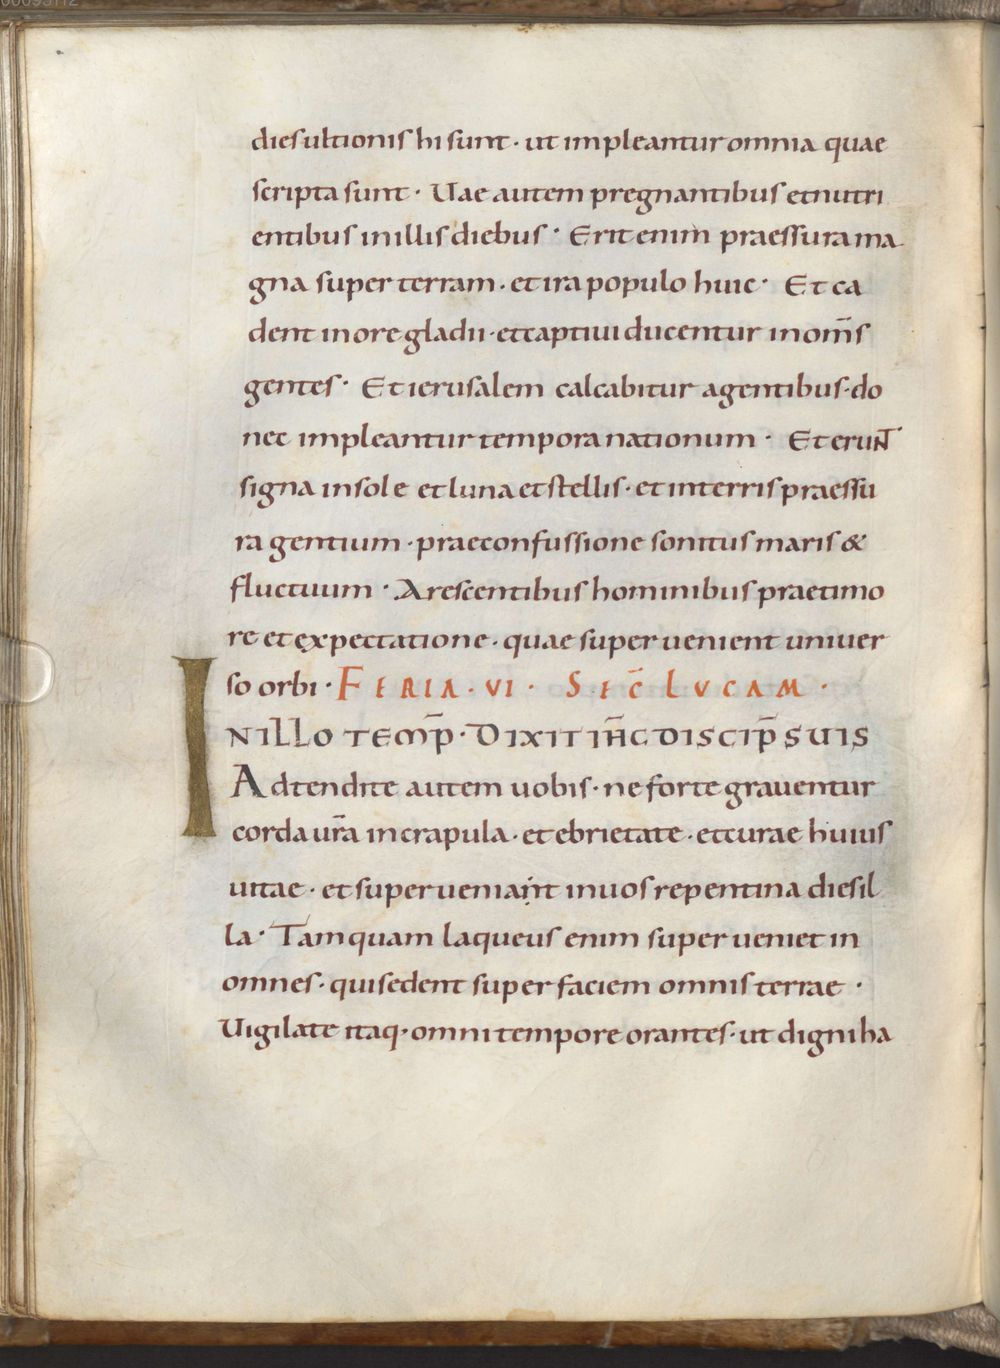 dies ultionis hi sunt · ut impleantur omnia quae
scripta sunt · Uae autem pregnantibus et nutri
entibus in illis diebus · Erit enim praessura ma
gna super terram · et ira populo huic · Et ca
dent in ore gladii · et captiui ducentur in om̅s
gentes · Et ierusalem calcabitur a gentibus · do
nec impleantur tempora nationum · Et erunt
signa in sole et luna et stellis · et in terris praessu
ra gentium · prae confussione sonitus maris &
fluctuum · Arescentibus hominibus prae timo
re et expectatione · quae super uenient uniuer
so orbi · FERIA · VI · SEC̅ LUCAM ·
IN ILLO TEMP̅ · DIXIT IH̅C DISCIP̅ SUIS
Adtendite autem uobis · ne forte grauentur
corda ur̅a in crapula · et ebrietate · et curae huius
uitae · et superueniant in uos repentina dies il
la · Tamquam laqueus enim superueniet in
omnes · qui sedent super faciem omnis terrae ·
Uigilate itaq · omni tempore orantes · ut digni ha